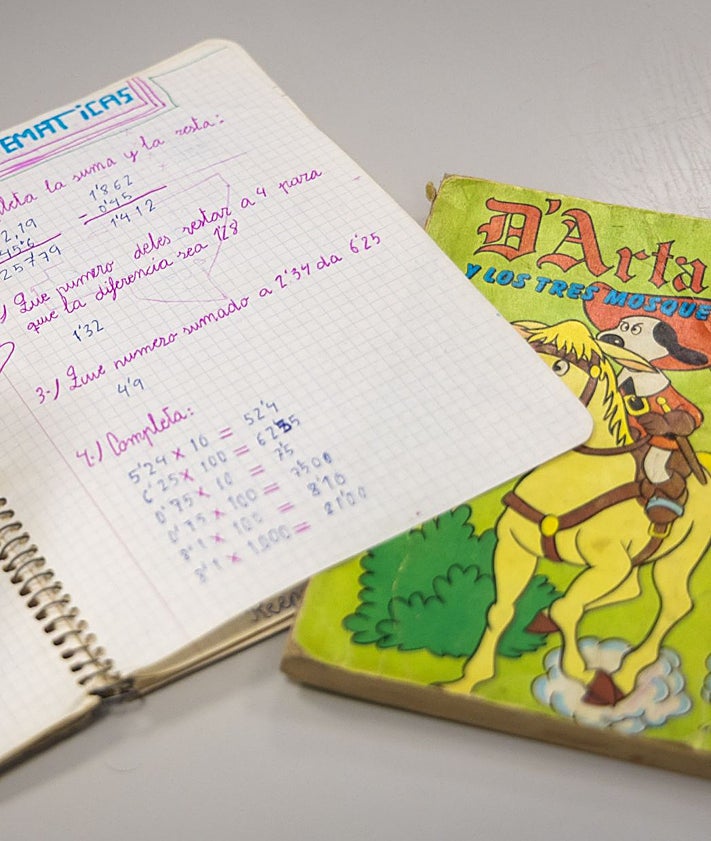 EMATICAS
leta la suma y la resta:
2,19
456
25779
1'862
= 0'45
1'412
) Que numero debes restar a 4 para
que la diferencia sea 1'28
1'32
3-) Que numero sumado a 2'34 da 6'25
4'9
4.) Completa:
5'24 x 10 = 52'4
6'25 x 100 =
0'75 x 10 = 7'5
0'75 x 100 = 7500
8'1 x 100 = 8'10
8'1 x 1.000 = 81'00
D'Arta
Y LOS TRES MOSQUE
Keep